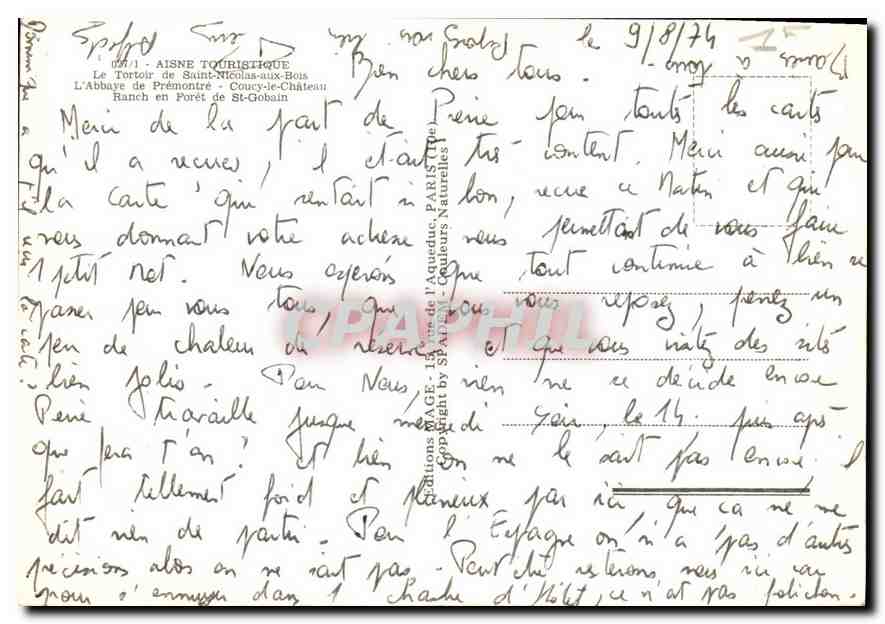 le 9/8/74
037/1 - AISNE TOURISTIQUE
Le Tortoir de Saint-Nicolas-aux-Bois
L'Abbaye de Prémontré - Coucy-le-Château
Ranch en Forêt de St-Gobain
Bien chers tous.
Merci de la part de Pierre pour toutes les cartes
qu'il a reçues, il était très content. Merci aussi pour
la carte qui sentait si bon, reçue ce Matin et qui
nous donnant votre adresse nous permettant de vous faire
1 ptit mot. Nous espérons que tout continue à bien se
passer pour vous tous, que vous vous reposez, prenez un
peu de chaleur de réserve et que vous visitez des sites
bien jolis. Pour Nous, rien ne se décide encore
Pierre travaille jusque mercredi soir, le 14. puis après
que fera t'on? et bien on ne le sait pas encore. Il
fait tellement froid et pluvieux par ici, que ça ne me
dit rien de partir. Pour l'Espagne on n'a pas d'autres
précisions alors on ne sait pas. Peut être resterons nous ici car
pour s'ennuyer dans 1 Chambre d'Hôtel, ce n'est pas folichon.
Editions MAGE - 15, rue de l'Aqueduc, PARIS (10e)
Copyright by SPADEM - Couleurs Naturelles
CPAPHIL